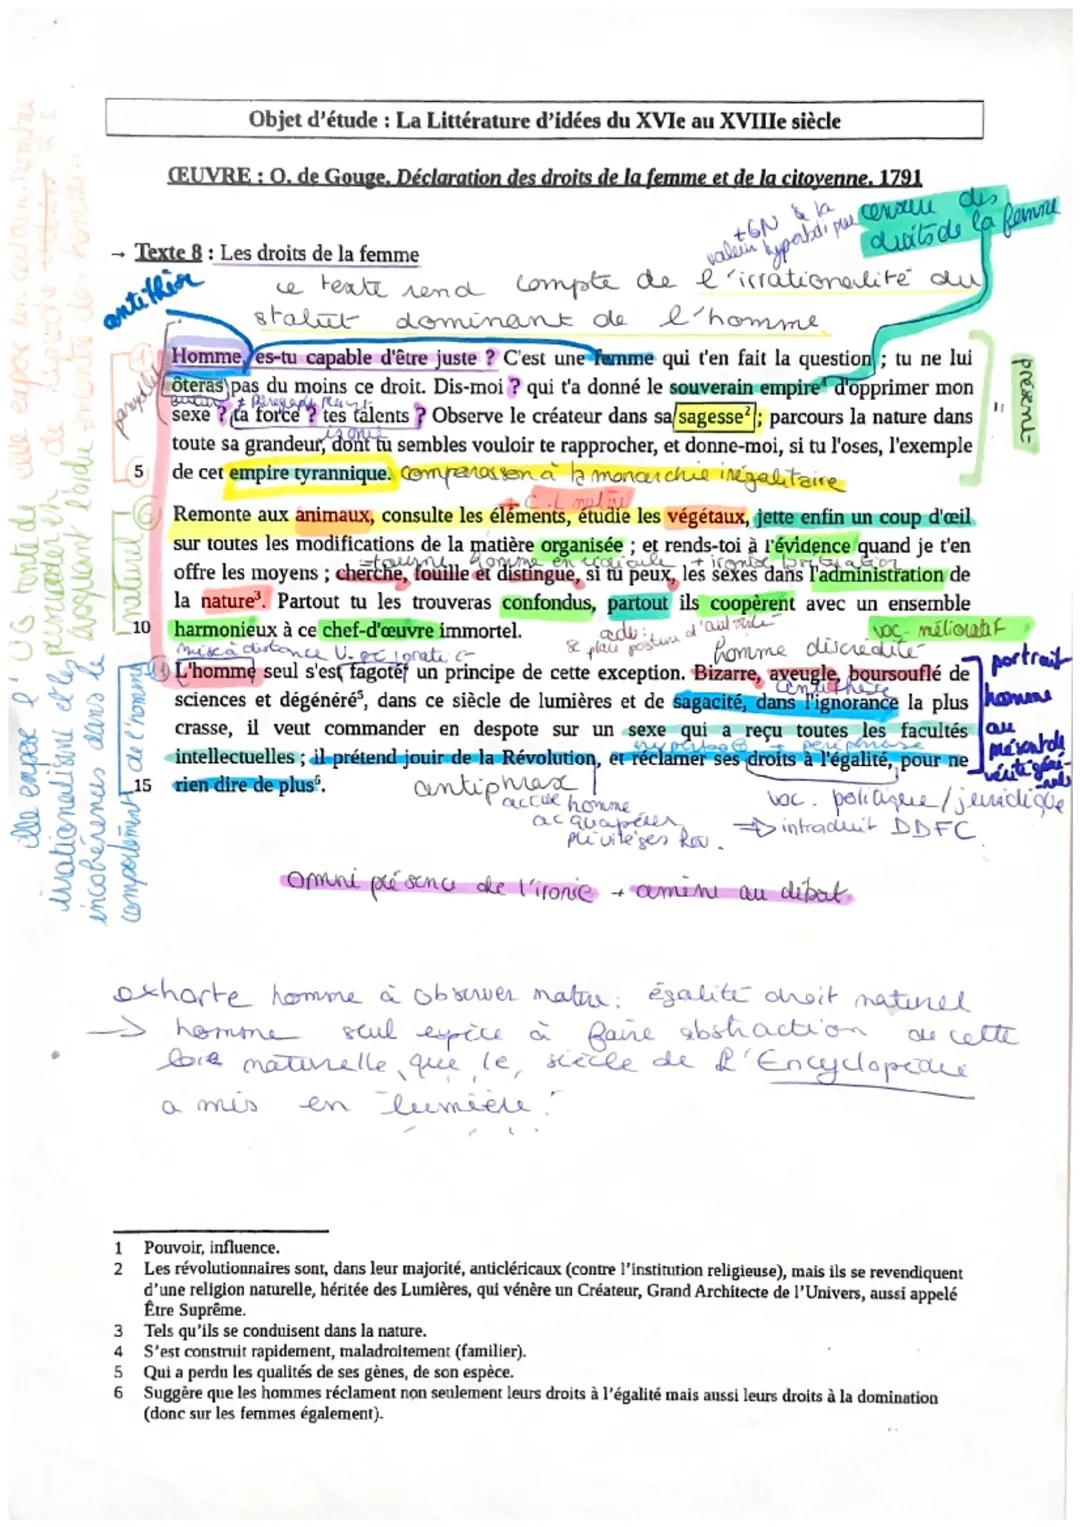 Objet d'étude : La Littérature d'idées du XVIe au XVIIIe siècle
ŒUVRE : O. de Gouge, Déclaration des droits de la femme et de la citoyenne, 1791
censeur des
droits de la femme
+GN & la
valeur
→ Texte 8 : Les droits de la femme
antithèse
ce texte rend compte de l'irrationalité du
statut dominant de l'homme
Homme, es-tu capable d'être juste ? C'est une femme qui t'en fait la question ; tu ne lui
ôteras pas du moins ce droit. Dis-moi ? qui t'a donné le souverain empire1 d'opprimer mon
sexe ? ta force ? tes talents ? Observe le créateur dans sa sagesse2 ; parcours la nature dans
ironie
toute sa grandeur, dont tu sembles vouloir te rapprocher, et donne-moi, si tu l'oses, l'exemple
5 de cet empire tyrannique. comparaison à la monarchie inégalitaire
présent
Remonte aux animaux, consulte les éléments, étudie les végétaux, jette enfin un coup d'œil
sur toutes les modifications de la matière organisée ; et rends-toi à l'évidence quand je t'en
tourne homme en ridicule + ironie
offre les moyens ; cherche, fouille et distingue, si tu peux, les sexes dans l'administration de
la nature3. Partout tu les trouveras confondus, partout ils coopèrent avec un ensemble
10 harmonieux à ce chef-d'œuvre immortel.
se place posture d'autorité
voc mélioratif
mise à distance V. péjoratif
homme discrédité
L'homme seul s'est fagoté4 un principe de cette exception. Bizarre, aveugle, boursouflé de
antithèse
sciences et dégénéré5, dans ce siècle de lumières et de sagacité, dans l'ignorance la plus
crasse, il veut commander en despote sur un sexe qui a reçu toutes les facultés
hyperbole + périphrase
intellectuelles ; il prétend jouir de la Révolution, et réclamer ses droits à l'égalité, pour ne
15 rien dire de plus6.
portrait
homme
au
présent de
vérité générale
antiphrase
accuse homme
acquapérer
privilèges Rev.
voc. politique / juridique
⇒ introduit DDFC
omniprésence de l'ironie → amène au débat
naturel
de l'homme
elle expose l'
irrationalisme et les
incohérences dans le
comportement
exhorte homme à observer nature : égalité droit naturel
→ homme seul espèce à faire abstraction de cette
loi naturelle que le siècle de l'Encyclopédie
a mis en lumière.
1 Pouvoir, influence.
2 Les révolutionnaires sont, dans leur majorité, anticléricaux (contre l'institution religieuse), mais ils se revendiquent
d'une religion naturelle, héritée des Lumières, qui vénère un Créateur, Grand Architecte de l'Univers, aussi appelé
Être Suprême.
3 Tels qu'ils se conduisent dans la nature.
4 S'est construit rapidement, maladroitement (familier).
5 Qui a perdu les qualités de ses gènes, de son espèce.
6 Suggère que les hommes réclament non seulement leurs droits à l'égalité mais aussi leurs droits à la domination
(donc sur les femmes également).